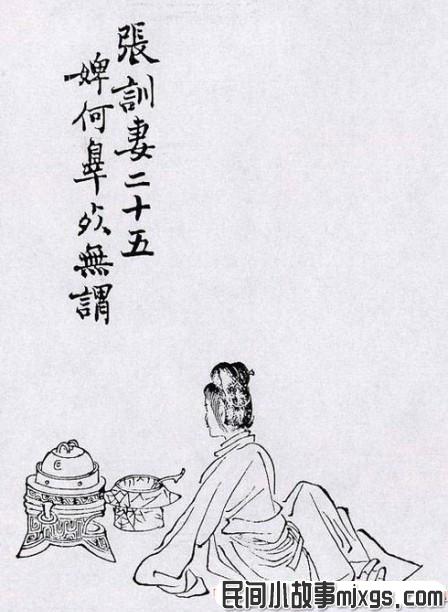 張訓妻二十五
婢何辠必無謂
民间小故事mixgs.com